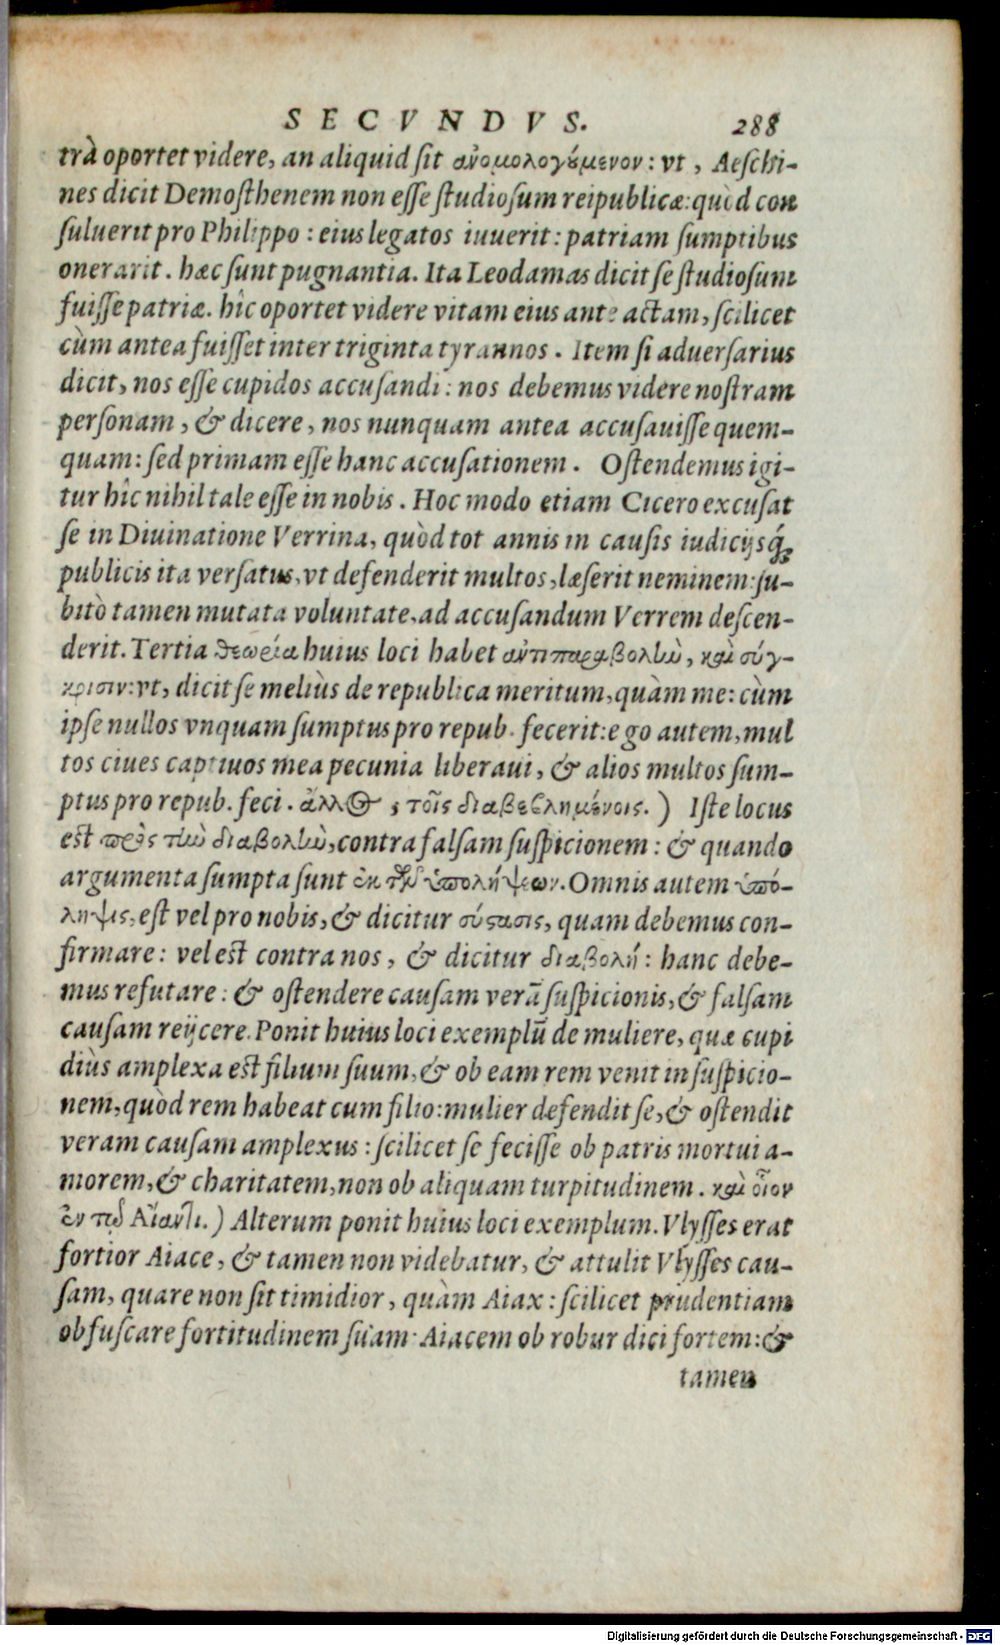 SECVNDVS. 288
trà oportet videre, an aliquid sit ἀνομολογούμενον: vt, Aeschi-
nes dicit Demosthenem non esse studiosum reipublicæ: quòd con
suluerit pro Philippo: eius legatos iuuerit: patriam sumptibus
onerarit. hæc sunt pugnantia. Ita Leodamas dicit se studiosum
fuisse patriæ. hîc oportet videre vitam eius ante actam, scilicet
cùm antea fuisset inter triginta tyrannos. Item si aduersarius
dicit, nos esse cupidos accusandi: nos debemus videre nostram
personam, & dicere, nos nunquam antea accusauisse quem-
quam: sed primam esse hanc accusationem. Ostendemus igi-
tur hîc nihil tale esse in nobis. Hoc modo etiam Cicero excusat
se in Diuinatione Verrina, quòd tot annis in causis iudicijsq́;
publicis ita versatus, vt defenderit multos, læserit neminem: su-
bitò tamen mutata voluntate, ad accusandum Verrem descen-
derit. Tertia θεωρία huius loci habet ἀντιπαραβολὼ, καὶ σύγ-
κρισιν: vt, dicit se meliùs de republica meritum, quàm me: cùm
ipse nullos vnquam sumptus pro repub. fecerit: ego autem, mul
tos ciues captiuos mea pecunia liberaui, & alios multos sum-
ptus pro repub. feci. ἄλλος, τοῖς διαβεβλημένοις.) Iste locus
est πρὸς τὼ διαβολὼ, contra falsam suspicionem: & quando
argumenta sumpta sunt ἐκ τῶν ὑπολήψεων. Omnis autem ὑπό-
ληψις, est vel pro nobis, & dicitur σύστασις, quam debemus con-
firmare: vel est contra nos, & dicitur διαβολή: hanc debe-
mus refutare: & ostendere causam verã suspicionis, & falsam
causam reijcere. Ponit huius loci exemplũ de muliere, quæ cupi
diùs amplexa est filium suum, & ob eam rem venit in suspicio-
nem, quòd rem habeat cum filio: mulier defendit se, & ostendit
veram causam amplexus: scilicet se fecisse ob patris mortui a-
morem, & charitatem, non ob aliquam turpitudinem. καὶ οἷον
ἐν τῷ Αἴαντι.) Alterum ponit huius loci exemplum. Vlysses erat
fortior Aiace, & tamen non videbatur, & attulit Vlysses cau-
sam, quare non sit timidior, quàm Aiax: scilicet prudentiam
obfuscare fortitudinem suam: Aiacem ob robur dici fortem: &
tamen
Digitalisierung gefördert durch die Deutsche Forschungsgemeinschaft - DFG